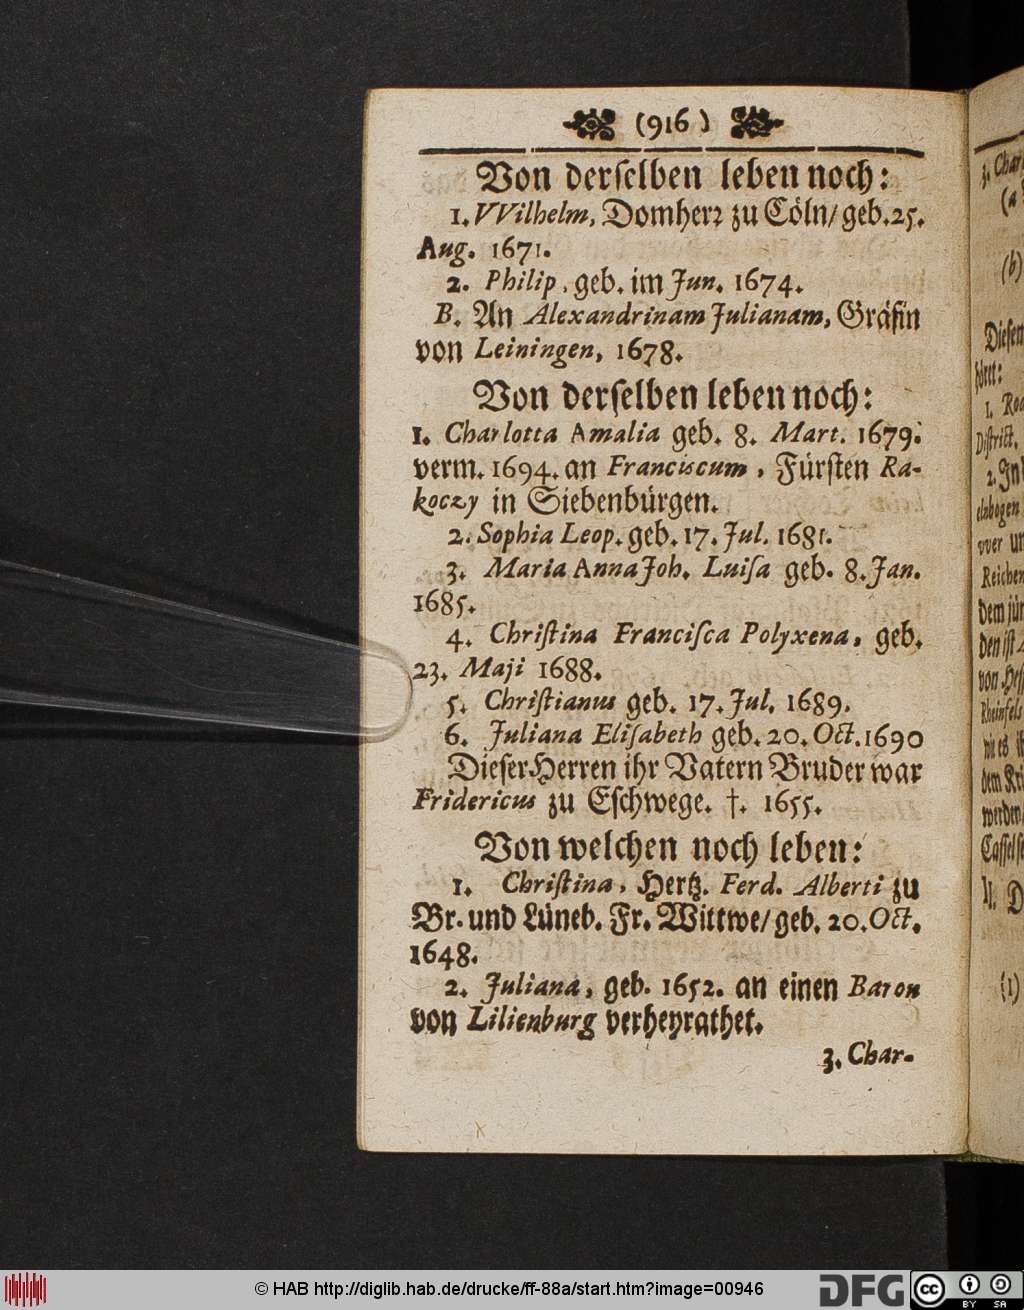 (916)
Von derſelben leben noch:
1. VVilhelm, Domherꝛ zu Cöln/ geb. 25.
Aug. 1671.
2. Philip, geb. im Jun. 1674.
B. An Alexandrinam Julianam, Gräfin
von Leiningen, 1678.
Von derſelben leben noch:
1. Charlotta Amalia geb. 8. Mart. 1679.
verm. 1694. an Franciscum, Fürſten Ra-
koczy in Siebenbürgen.
2. Sophia Leop. geb. 17. Jul. 1681.
3. Maria Anna Joh. Luiſa geb. 8. Jan.
1685.
4. Chriſtina Franciſca Polyxena, geb.
23. Maji 1688.
5. Chriſtianus geb. 17. Jul. 1689.
6. Juliana Eliſabeth geb. 20. Oct. 1690
Dieſer Herren ihr Vatern Bruder war
Fridericus zu Eſchwege. †. 1655.
Von welchen noch leben:
1. Chriſtina, Hertz. Ferd. Alberti zu
Br. und Lüneb. Fr. Wittwe/ geb. 20. Oct.
1648.
2. Juliana, geb. 1652. an einen Baron
von Lilienburg verheyrathet.
3. Char-
3. Char
(a
(b)
Dieſen
höret:
1. Ro
Diſtrict.
2. In
elnbogen
vver
Reichen
dem
den iſt
von Heſ
Rheinfels
wie es
dem
werden/
Caſſelſ
II. D
(1)
© HAB http://diglib.hab.de/drucke/ff-88a/start.htm?image=00946
DFG
cc
BY SA